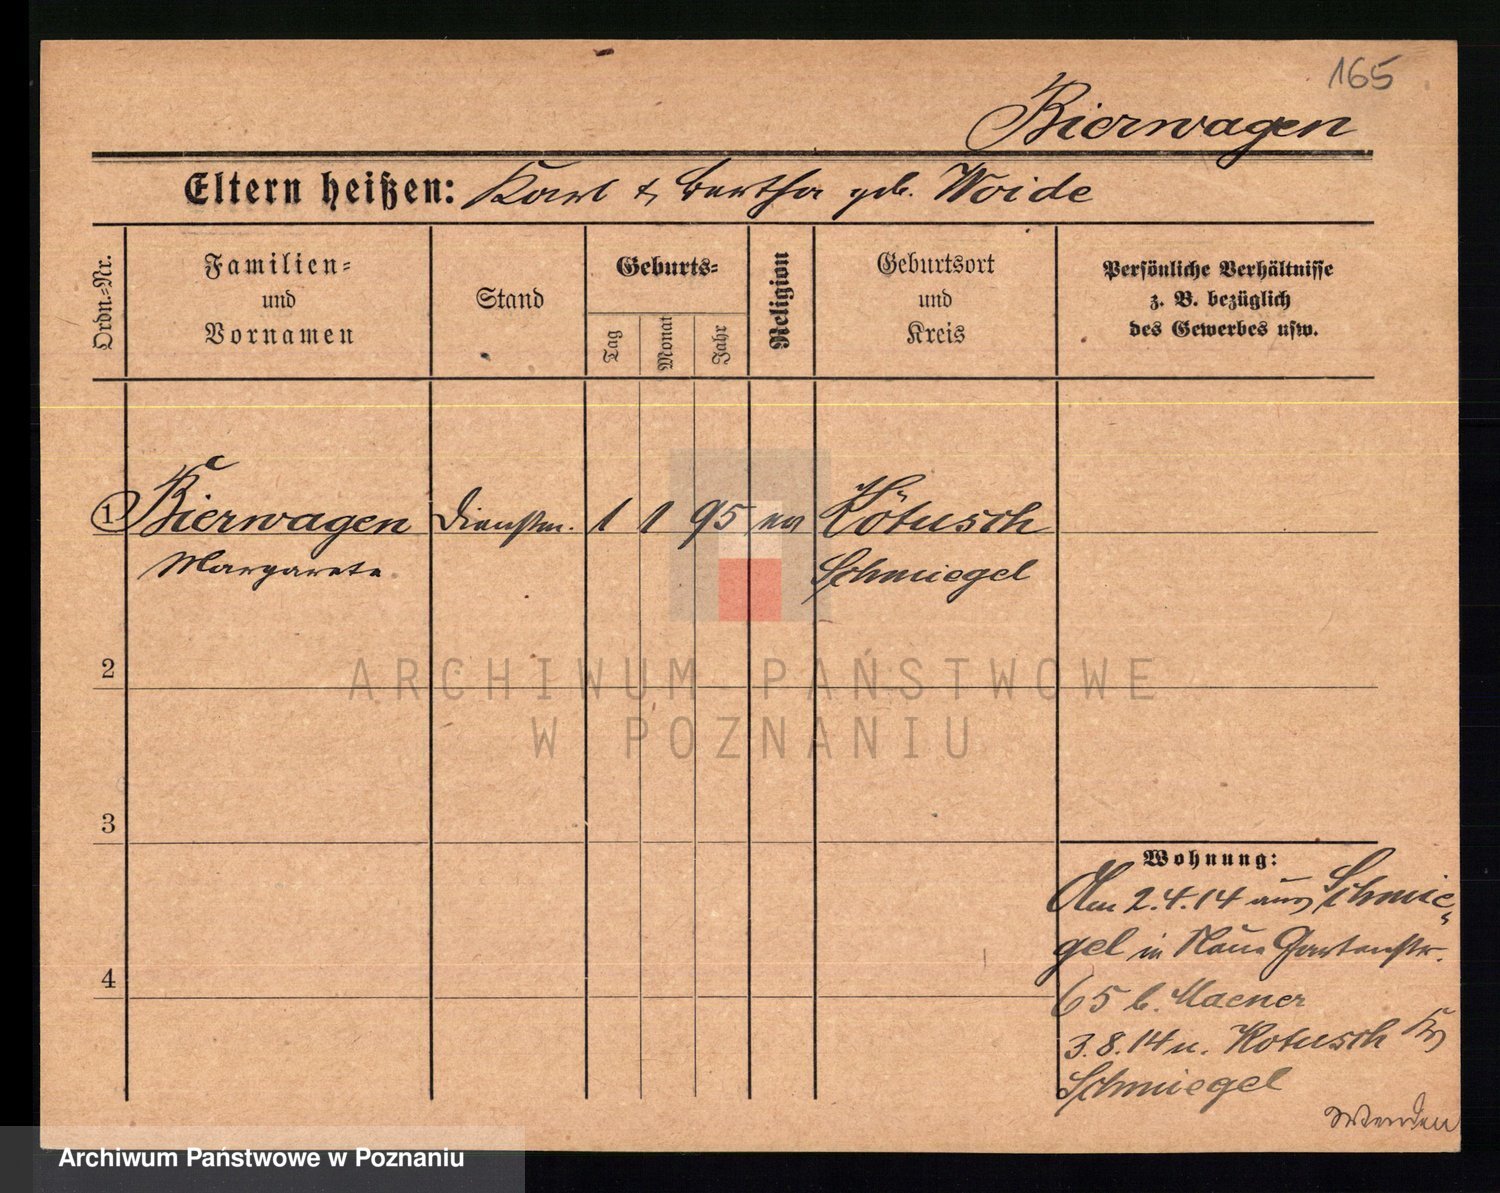 165
Bierwagen
Eltern heißen: Karl & Bertha geb. Woide
Ordn.=Nr.
Familien=
und
Vornamen
Stand
Geburts=
Tag
Monat
Jahr
Religion
Geburtsort
und
Kreis
Persönliche Verhältnisse
z. B. bezüglich
des Gewerbes usw.
1 Bierwagen Dienstm. 1 1 95 ev Kötusch
Margarete Schmiegel
2
3
4
Wohnung:
Am 2.4.14 aus Schmie=
gel in Neue Gartenstr.
65 b.
3.8.14 n. Kotusch Kr
Schmiegel
Wenden
ARCHIWUM PAŃSTWOWE
W POZNANIU
Archiwum Państwowe w Poznaniu